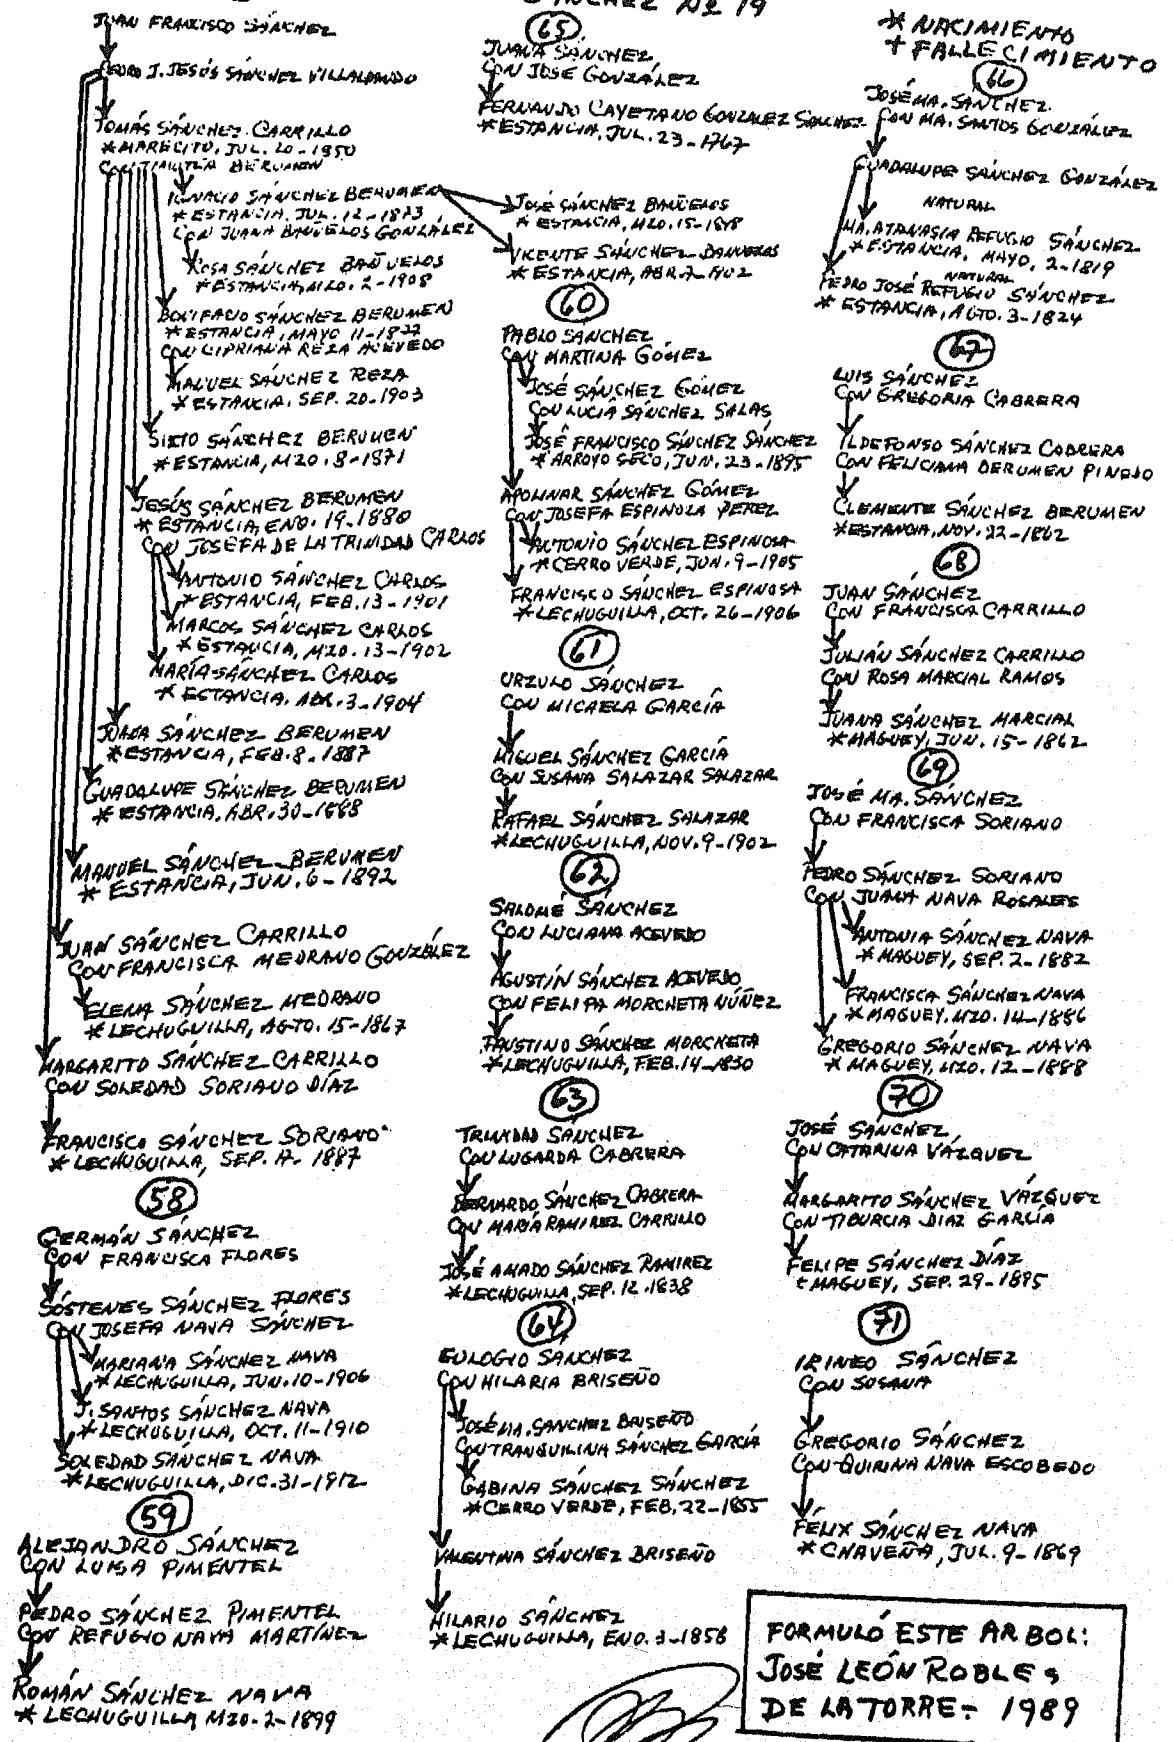 SÁNCHEZ Nº 19
JUAN FRANCISCO SÁNCHEZ
PEDRO J. JESÚS SÁNCHEZ VILLALPANDO
TOMÁS SÁNCHEZ CARRILLO
* MARECITO, JUL. 20-1850
CON BERUMEN
IGNACIO SÁNCHEZ BERUMEN
* ESTANCIA, JUL. 12-1873
CON JUANA BAÑUELOS GONZÁLEZ
ROSA SÁNCHEZ BAÑUELOS
* ESTANCIA, MZO. 2-1908
BONIFACIO SÁNCHEZ BERUMEN
* ESTANCIA, MAYO 11-1877
CON CIPRIANA REZA ACEVEDO
MANUEL SÁNCHEZ REZA
* ESTANCIA, SEP. 20-1903
SIXTO SÁNCHEZ BERUMEN
* ESTANCIA, MZO. 8-1871
JESÚS SÁNCHEZ BERUMEN
* ESTANCIA, ENO. 19-1880
CON JOSEFA DE LA TRINIDAD CARLOS
ANTONIO SÁNCHEZ CARLOS
* ESTANCIA, FEB. 13-1901
MARCOS SÁNCHEZ CARLOS
* ESTANCIA, MZO. 13-1902
MARÍA SÁNCHEZ CARLOS
* ESTANCIA, ABR. 3-1904
JUANA SÁNCHEZ BERUMEN
* ESTANCIA, FEB. 8-1887
GUADALUPE SÁNCHEZ BERUMEN
* ESTANCIA, ABR. 30-1888
MANUEL SÁNCHEZ BERUMEN
* ESTANCIA, JUN. 6-1892
JUAN SÁNCHEZ CARRILLO
CON FRANCISCA MEDRANO GONZÁLEZ
ELENA SÁNCHEZ MEDRANO
* LECHUGUILLA, AGTO. 15-1867
MARGARITO SÁNCHEZ CARRILLO
CON SOLEDAD SORIANO DÍAZ
FRANCISCO SÁNCHEZ SORIANO
* LECHUGUILLA, SEP. 17-1887
58
GERMÁN SÁNCHEZ
CON FRANCISCA FLORES
SÓSTENES SÁNCHEZ FLORES
CON JOSEFA NAVA SÁNCHEZ
MARIANA SÁNCHEZ NAVA
* LECHUGUILLA, JUN. 10-1906
J. SANTOS SÁNCHEZ NAVA
* LECHUGUILLA, OCT. 11-1910
SOLEDAD SÁNCHEZ NAVA
* LECHUGUILLA, DIC. 31-1912
59
ALEJANDRO SÁNCHEZ
CON LUISA PIMENTEL
PEDRO SÁNCHEZ PIMENTEL
CON REFUGIO NAVA MARTÍNEZ
ROMÁN SÁNCHEZ NAVA
* LECHUGUILLA MZO. 2-1899
65
JUANA SÁNCHEZ
CON JOSÉ GONZÁLEZ
FERNANDO CAYETANO GONZALEZ SÁNCHEZ
* ESTANCIA, JUL. 23-1767
JOSÉ SÁNCHEZ BAÑUELOS
* ESTANCIA, MZO. 15-1898
VICENTE SÁNCHEZ BAÑUELOS
* ESTANCIA, ABR. 7-1902
60
PABLO SÁNCHEZ
CON MARTINA GÓMEZ
JOSÉ SÁNCHEZ GÓMEZ
CON LUCÍA SÁNCHEZ SALAS
JOSÉ FRANCISCO SÁNCHEZ SÁNCHEZ
* ARROYO SECO, JUN. 23-1895
APOLINAR SÁNCHEZ GÓMEZ
CON JOSEFA ESPINOZA PEREZ
ANTONIO SÁNCHEZ ESPINOSA
* CERRO VERDE, JUN. 9-1905
FRANCISCO SÁNCHEZ ESPINOSA
* LECHUGUILLA, OCT. 26-1906
61
URZULO SÁNCHEZ
CON MICAELA GARCÍA
MIGUEL SÁNCHEZ GARCÍA
CON SUSANA SALAZAR SALAZAR
RAFAEL SÁNCHEZ SALAZAR
* LECHUGUILLA, NOV. 9-1902
62
SALOMÉ SÁNCHEZ
CON LUCIANA ACEVEDO
AGUSTÍN SÁNCHEZ ACEVEDO
CON FELIPA MORCHETA NÚÑEZ
FAUSTINO SÁNCHEZ MORCHETA
* LECHUGUILLA, FEB. 14-1830
63
TRINIDAD SÁNCHEZ
CON LUGARDA CABRERA
BERNARDO SÁNCHEZ CABRERA
CON MARÍA RAMIREZ CARRILLO
JOSÉ AMADO SÁNCHEZ RAMIREZ
* LECHUGUILLA, SEP. 12-1838
64
EULOGIO SANCHEZ
CON HILARIA BRISEÑO
JOSÉ MA. SANCHEZ BRISEÑO
CON TRANQUILINA SÁNCHEZ GARCÍA
GABINA SÁNCHEZ SÁNCHEZ
* CERRO VERDE, FEB. 22-1855
VALENTINA SÁNCHEZ BRISEÑO
HILARIO SÁNCHEZ
* LECHUGUILLA, ENO. 3-1856
* NACIMIENTO
+ FALLECIMIENTO
66
JOSÉ MA. SÁNCHEZ
CON MA. SANTOS GONZÁLEZ
GUADALUPE SÁNCHEZ GONZÁLEZ
NATURAL
MA. ATANASIA REFUGIO SÁNCHEZ
* ESTANCIA, MAYO, 2-1819
NATURAL
PEDRO JOSÉ REFUGIO SÁNCHEZ
* ESTANCIA, AGTO. 3-1824
67
LUIS SÁNCHEZ
CON GREGORIA CABRERA
ILDEFONSO SÁNCHEZ CABRERA
CON FELICIANA BERUMEN PINEDO
CLEMENTE SÁNCHEZ BERUMEN
* ESTANCIA, NOV. 22-1862
68
JUAN SÁNCHEZ
CON FRANCISCA CARRILLO
JULIÁN SÁNCHEZ CARRILLO
CON ROSA MARCIAL RAMOS
JUANA SÁNCHEZ MARCIAL
* MAGUEY, JUN. 15-1862
69
JOSÉ MA. SÁNCHEZ
CON FRANCISCA SORIANO
PEDRO SÁNCHEZ SORIANO
CON JUANA NAVA ROSALES
ANTONIA SÁNCHEZ NAVA
* MAGUEY, SEP. 2-1882
FRANCISCA SÁNCHEZ NAVA
* MAGUEY, MZO. 14-1886
GREGORIO SÁNCHEZ NAVA
* MAGUEY, MZO. 12-1888
70
JOSÉ SÁNCHEZ
CON CATARINA VÁZQUEZ
MARGARITO SÁNCHEZ VÁZQUEZ
CON TIBURCIA DIAZ GARCÍA
FELIPE SÁNCHEZ DÍAZ
+ MAGUEY, SEP. 29-1895
71
IRINEO SÁNCHEZ
CON SOSANA
GREGORIO SÁNCHEZ
CON QUIRINA NAVA ESCOBEDO
FÉLIX SÁNCHEZ NAVA
* CHAVEÑA, JUL. 9-1869
FORMULÓ ESTE ARBOL:
JOSÉ LEÓN ROBLES
DE LA TORRE - 1989